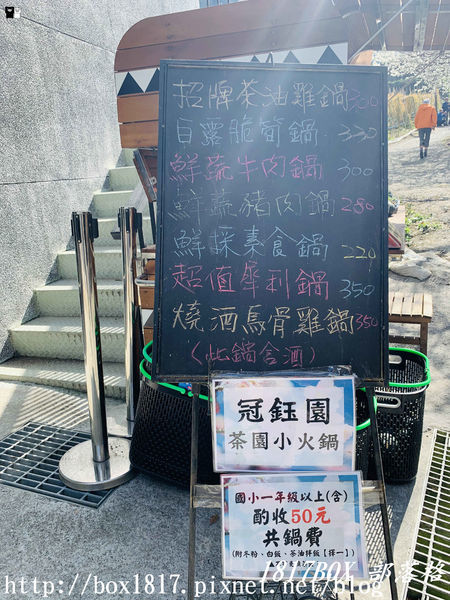 招牌茶油雞鍋300
白露脆筍鍋 330
鮮蔬牛肉鍋 300
鮮蔬豬肉鍋 280
鮮採素食鍋 220
超值犀利鍋 350
燒酒烏骨雞鍋350
(此鍋含酒)
冠鈺園
茶園小火鍋
國小一年級以上(含)
酌收50元
共鍋費
(附冬粉、白飯、茶油拌飯【擇一】)
1817BOX 部落格
http://box1817.pixnet.net/blog